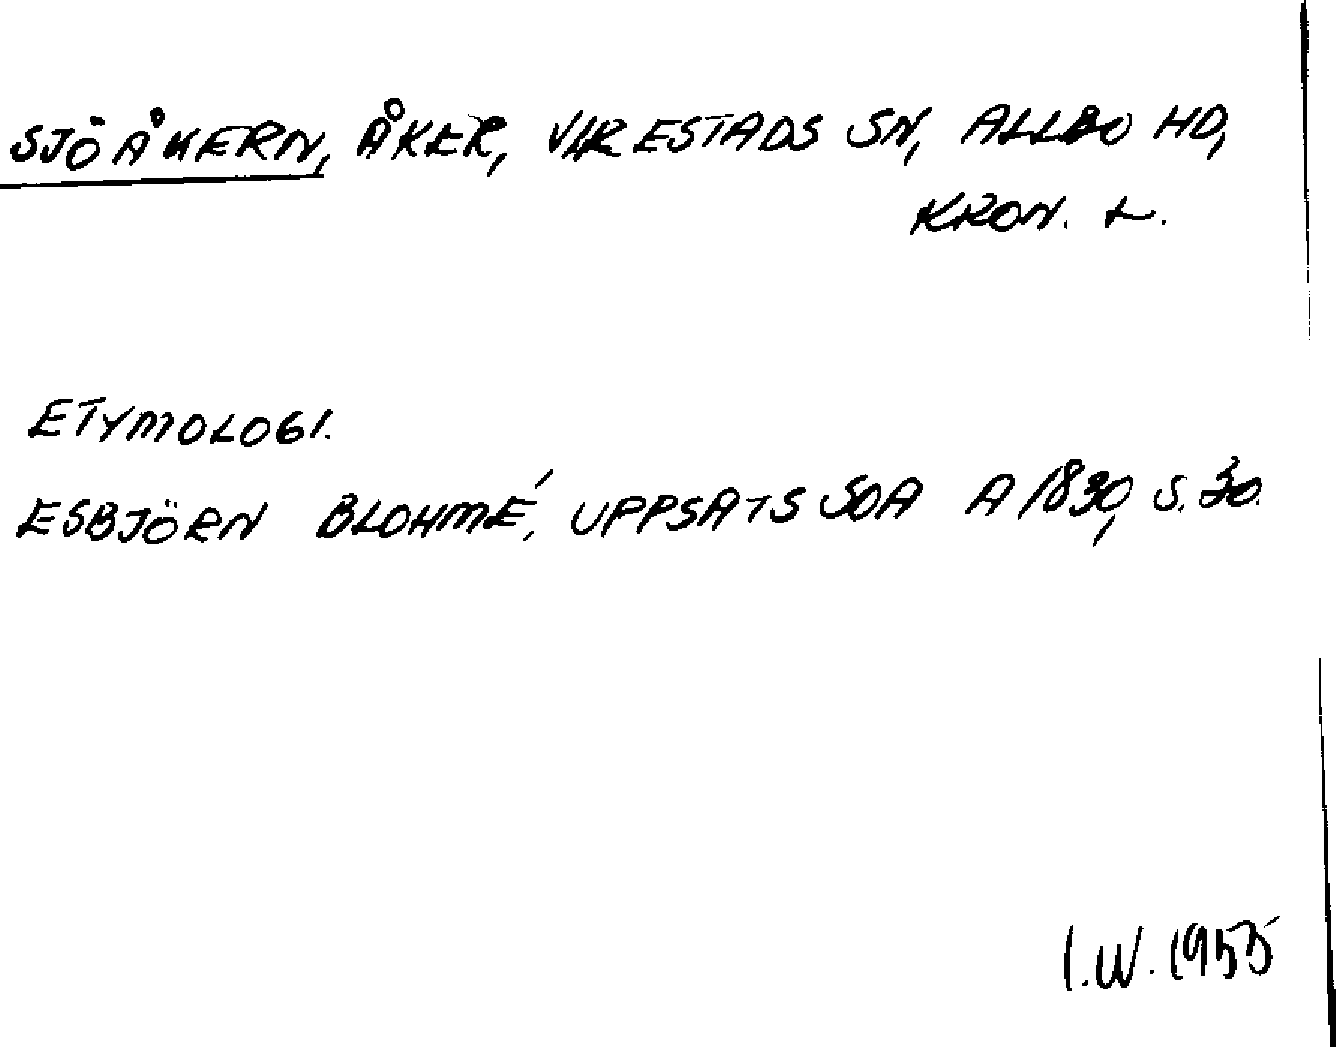 SJÖÅKERN, ÅKER, VIRESTADS SN, ALLBO HD,
KRON. L.
ETYMOLOGI.
ESBJÖRN BLOHMÉ, UPPSATS SOA A 1830, S. 30.
I.W. 1955